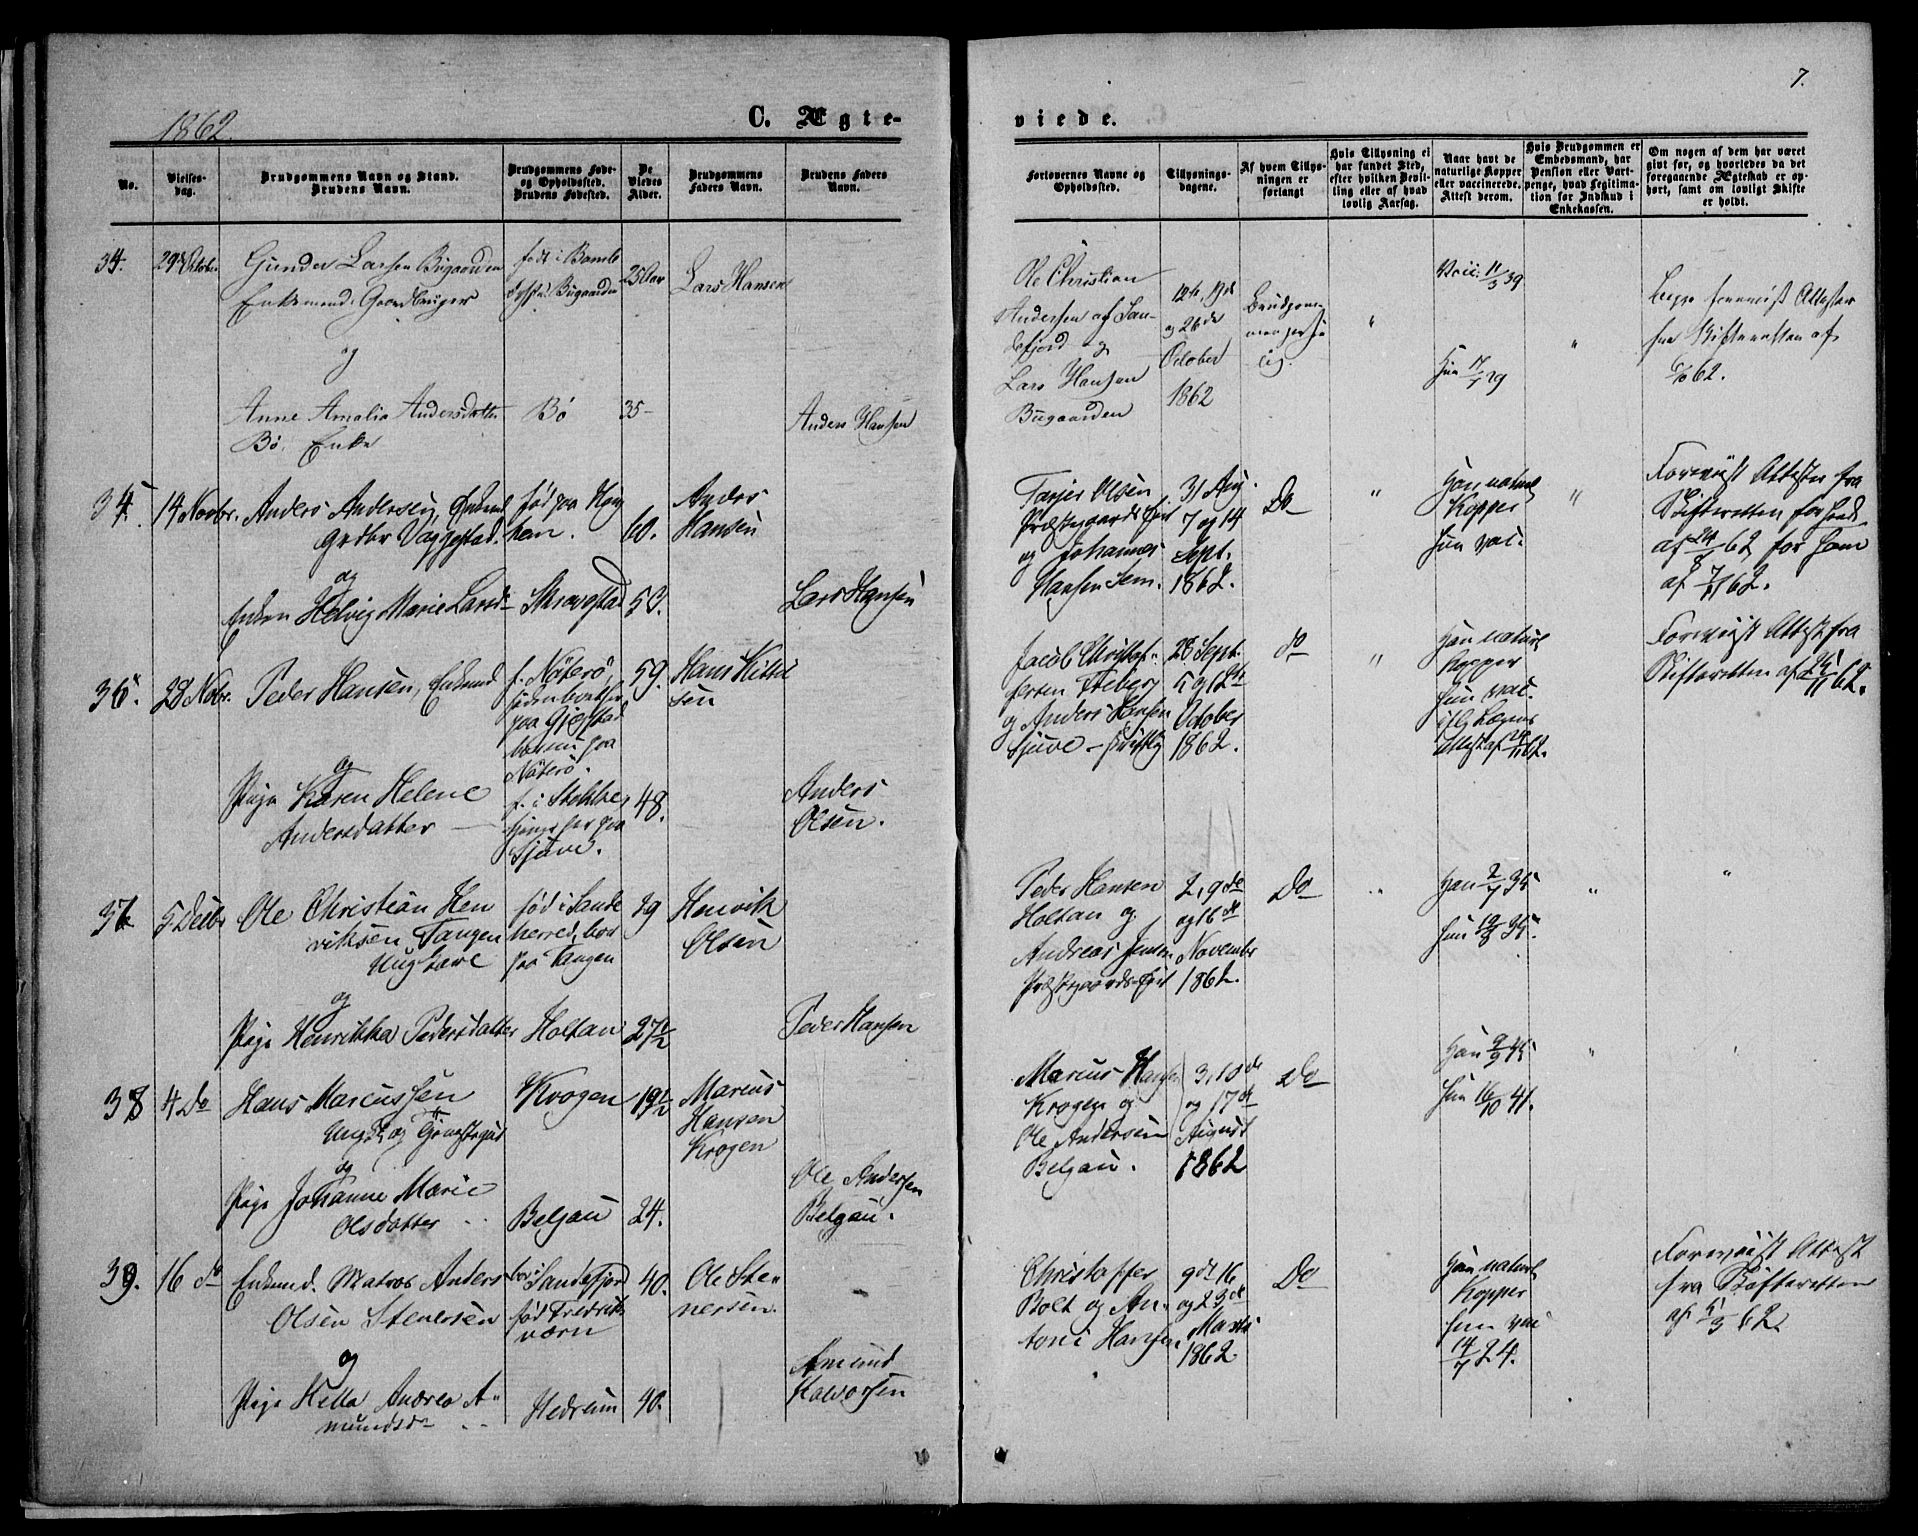 7.
1862
C. Ægte-
viede.
No.
Vielses-
dag.
Brudgommens Navn og Stand.
Brudens Navn.
Brudgommens Føde-
og Opholdssted.
Brudens Fødested.
De
Viedes
Alder.
Brudgommens
Faders Navn.
Brudens Faders
Navn.
Forlovernes Navne og
Opholdssted.
Tillysnings-
dagene.
Af hvem Tillys-
ningen er
forlangt
Hvis Tillysning ei
har fundet Sted,
efter hvilken Bevil-
ling eller af hvad
lovlig Aarsag.
Naar havt de
naturlige Kopper
eller vaccinerede.
Attest derom.
Hvis Brudgommen er
Embedsmand, har
Pension eller Vart-
penge, hvad Legitima-
tion for Indskud i
Enkekassen.
Om nogen af dem har været
givt før, og hvorledes da det
foregaaende Ægteskab er op-
hørt, samt om lovligt Skifte
er holdt.
34.
29de Octobr
Gunder Larsen Bugaarden
Enkemand. Gaardbruger
og
Anne Amalia Andersdatter
Bø. Enke
født i Bamle
Bugaarden
Bø
25 Aar
35 -
Lars Hansen
Anders Hansen
Ole Christian
Andersen af San-
defjord og
Lars Hansen
Bugaarden
12te, 19de
og 26de
October
1862
Brudgom-
men
"
Vacc. 11/5 39
Hun
"
Attester
fra Skifteretten af
62.
35.
14 Novbr.
Anders Andersen, Enkem.
Grdbr Vaggestad.
og
Enken Helvig Marie Larsd
død paa Hau
nen.
60.
53.
Anders
Hansen
Lars Hansen
Tarjer Olsen
Præstegaards Eiet
og Johannes
Hansen Sem.
31 Aug.
7 og 14
Sept.
1862.
Do
"
Han naturl
Kopper
Hun vac.
"
Foreviist Attester fra
Skifteretten for hende
af 24/8 62 for ham
af 7/11 62.
36.
28 Novbr.
Peder Hansen, Enkemd
og
Pige Karen Helene
Andersdatter
f. Nøterø,
paa Gjøgstad
paa
Nøterø.
f. i Stokke,
paa
Sjuve.
59.
48.
Hans Kittil
sen
Anders
Olsen.
Jacob Christof-
fersen
og Anders Hansen
Sjuve
28 Sept.
5 og 12te
October
1862.
do
"
Han naturl
Kopper
Hun vac.
iflg Lægens
Attest af 24/11 62.
Foreviist Attest fra
Skifteretten af 25/11 62.
37
5 Decbr
Ole Christian Hen
riksen Tangen
Ungkarl
og
Pige Henrikka Pedersdatter
fød i Sande
herred, bor
paa Tangen
Holtan
39
27 1/2
Henrik
Olsen
Peder Hansen
Peder Hansen
Holtan og
Andreas Jensen
Præstegaards-Eiet
2, 9de
og 16de
November
1862.
Do
"
Han 2/7 35
Hun 19/8 35.
"
"
38
4 Do
Hans Marcussen
Ungk. og
og
Pige Johanne Marie
Olsdatter
Krogen
Belgau
19 1/2
24.
Marius
Hansen
Krogen
Ole Andersen
Belgau.
Marcus Hansen
Krogen og
Ole Andersen
Belgau.
3, 10de
og 17de
August
1862
Do
Han 9/9 45
Hun 16/10 41.
"
39.
16 do
Enkemd. Matros Anders
Olsen Stenersen
og
Pige Hella Andrea A-
mundsdr
bor i Sandefjord
fød Fredriks
værn
Hedrum
40.
40.
Ole Ste-
nersen.
Amund
Halvorsen
Christoffer
Bolt og An-
toni Hansen
9de 16
og 23de
Marts
1862
Do
Han naturl
Kopper
Hun vac
14/7 24.
Foreviist Attest
fra Skifteretten
af 5/3 62.